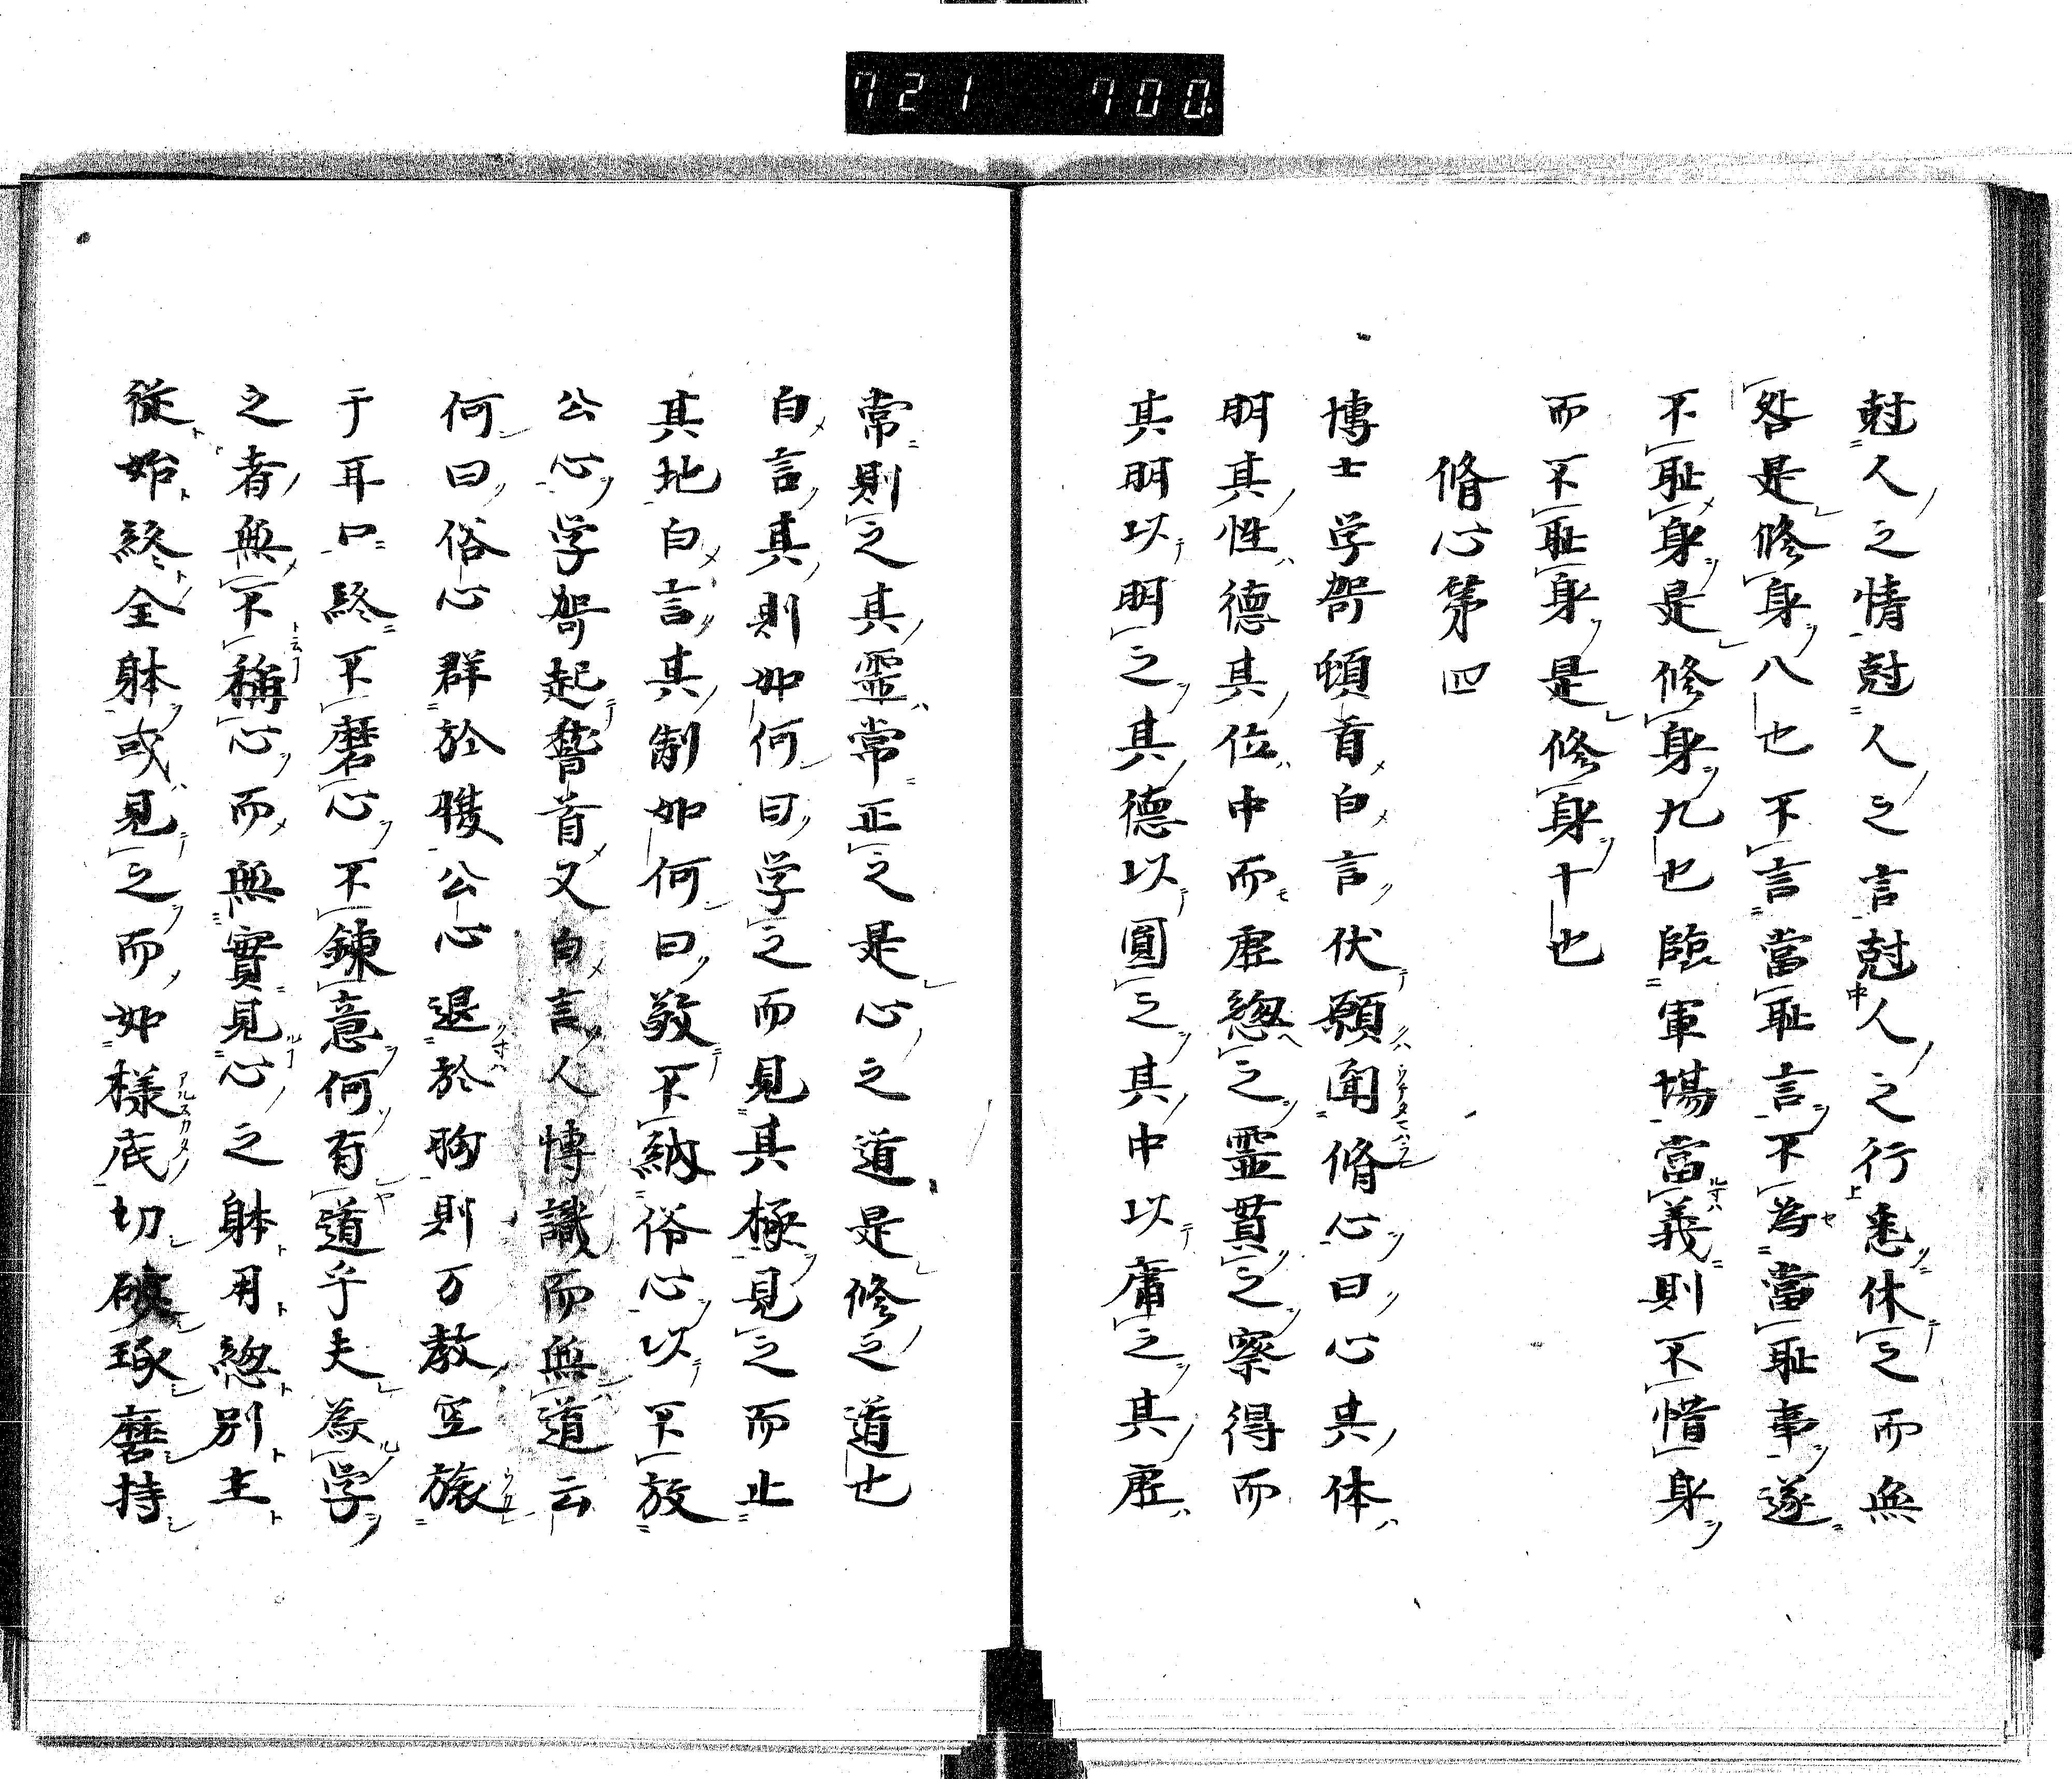 721 700
尅人之情尅人之言尅人之行悉休之而無
咎是修身八也不言當恥言不為當恥事遂
不恥身是修身九也臨軍場當義則不惜身
而不恥身是修身十也
脩心第四
博士学哿頓首白言伏願聞脩心曰心其体
明其性德其位中而虗緫之霊貫之察得而
其明以明之其德以圓之其中以庸之其虗
常則之其霊常正之是心之道是修之道也
白言其則如何曰学之而見其極見之而止
其地白言其制如何曰敬不納俗心以不放
公心学哿起䭫首又白言人博識而無道云
何曰俗心群於腹公心退於胸則万教空旅
于耳口終不磨心不錬意何有道乎夫為学
之者無不稱心而無實見心之躰用緫別主
従始終全躰或見之而如様底切破琢磨持